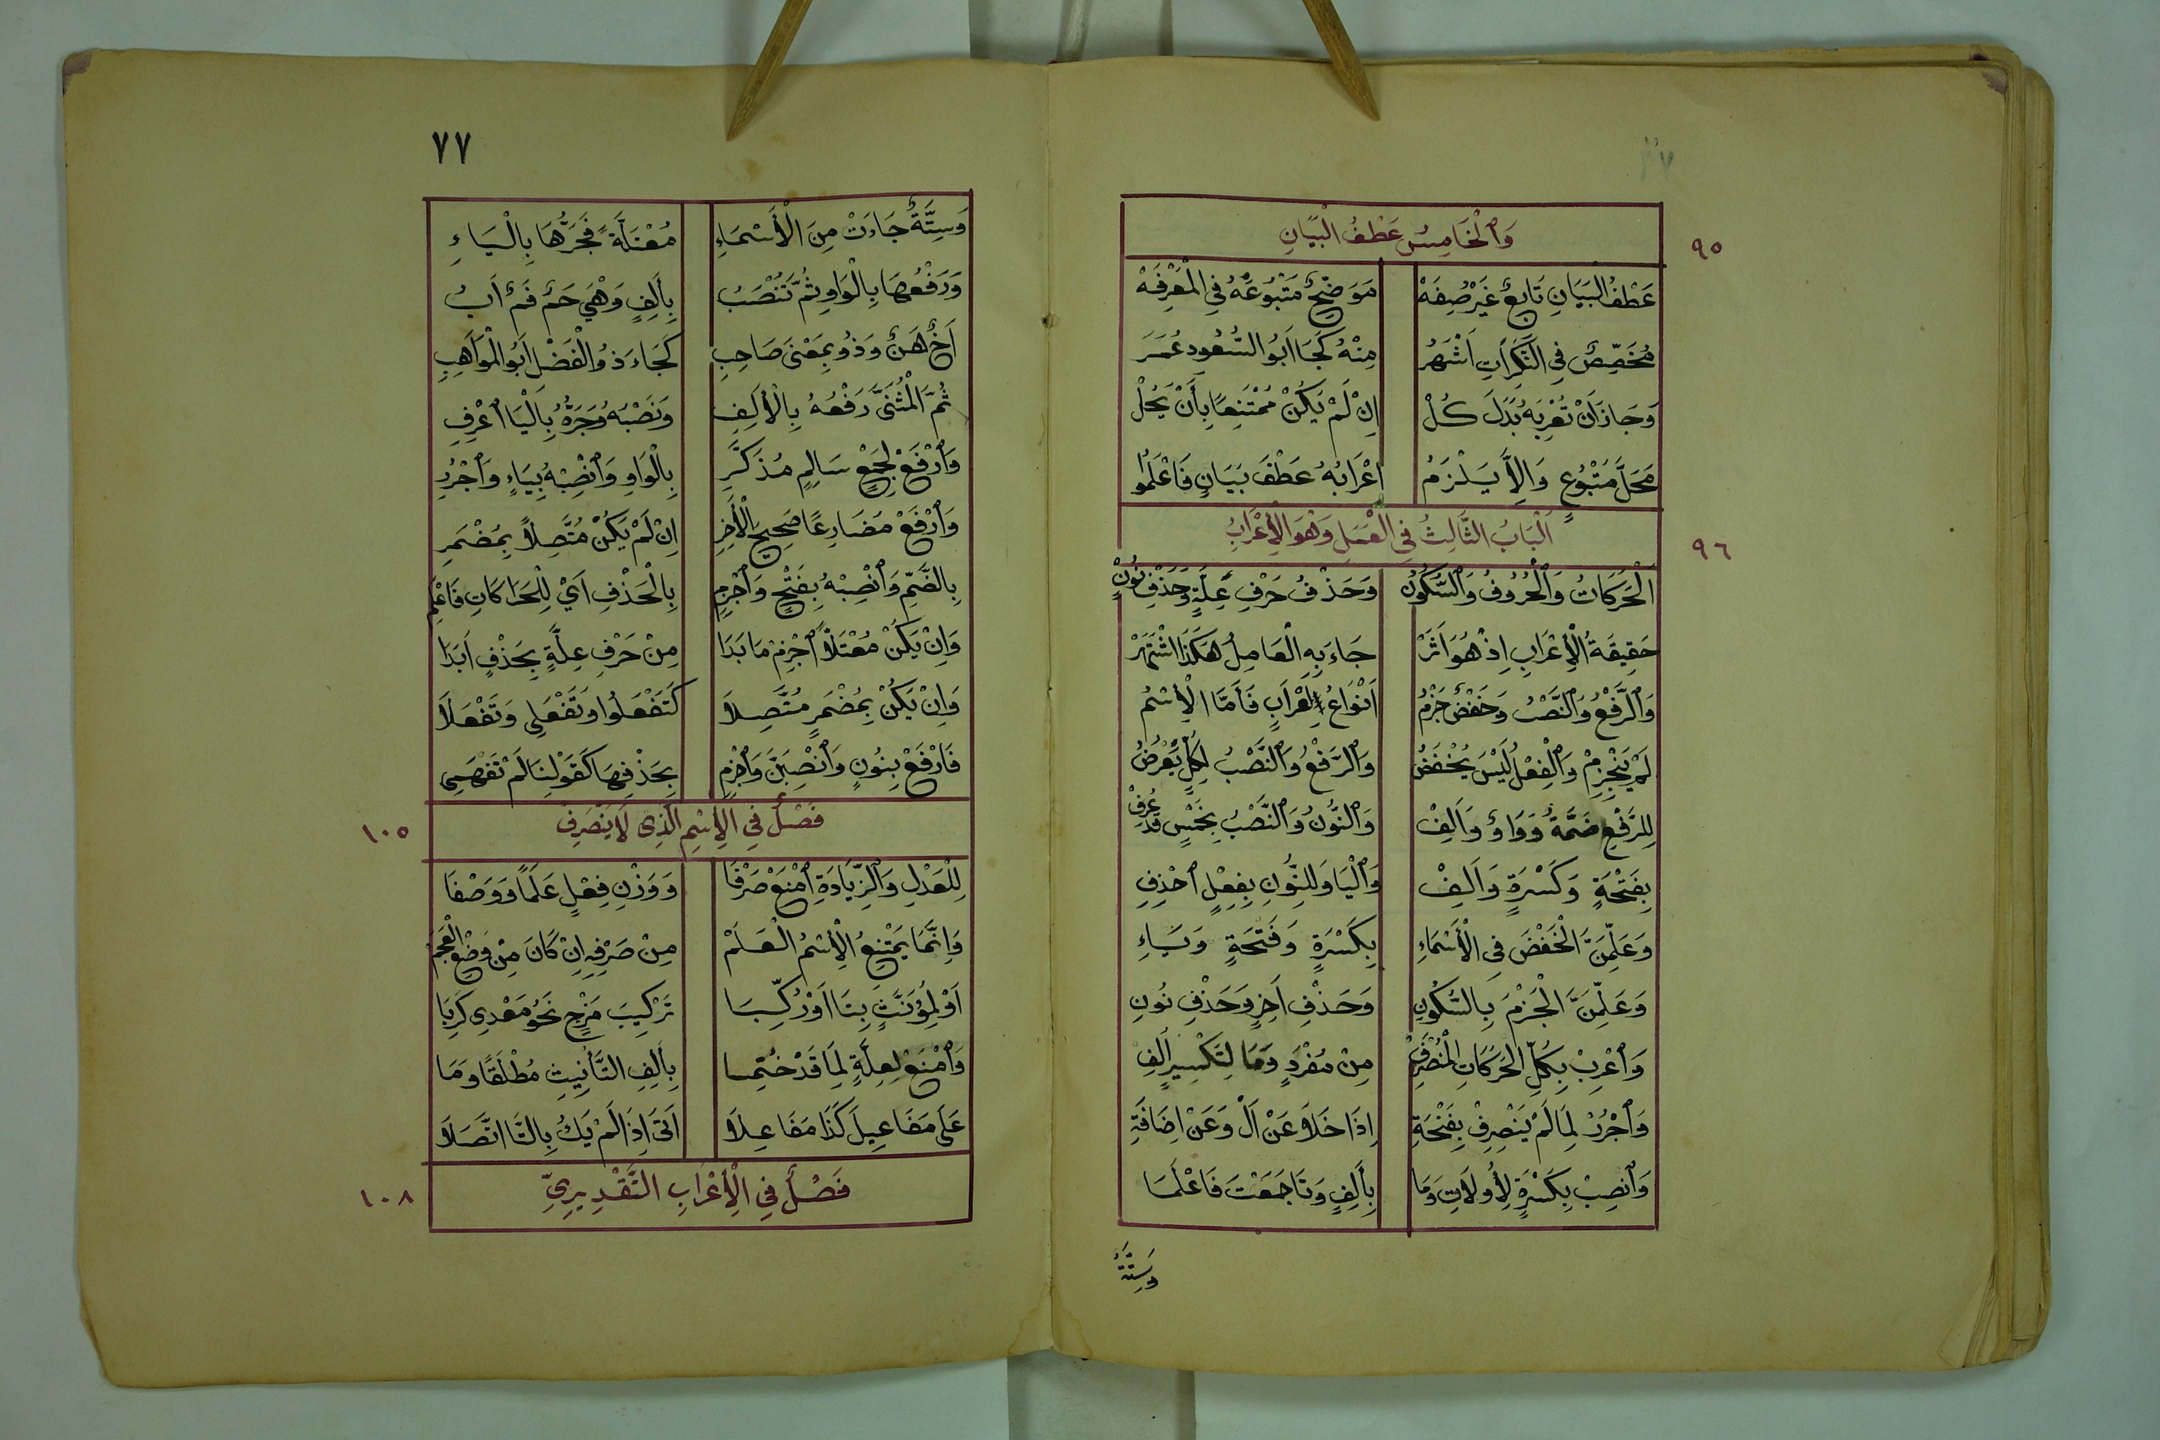 وَٱلْخَامِسُ عَطْفُ الْبَيَانِ
٩٥
عَطْفُ الْبَيَانِ تَابِعٌ غَيْرُ صِفَهْ مُوَضِّحٌ مَتْبُوعَهُ فِي الْمَعْرِفَهْ
مُخَصِّصٌ فِي النَّكِرَاتِ اَشْهَرُ مِنْهُ كَجَا اَبُو السُّعُودِ عُمَرَ
وَجَازَ اَنْ تُعْرِبَهُ بَدَلَ كُلْ اِنْ لَمْ يَكُنْ مُمْتَنِعًا بِأَنْ يَحُلْ
مَحَلَّ مَتْبُوعٍ وَاِلاَّ يَلْزَمُ اِعْرَابُهُ عَطْفَ بَيَانٍ فَاعْلَمُوا
اَلْبَابُ الثَّالِثُ فِي الْعَمَلِ وَهْوَ الْاِعْرَابُ
٩٦
اَلْحَرَكَاتُ وَٱلْحُرُوفُ وَٱلسُّكُونْ وَحَذْفُ حَرْفِ عِلَّةٍ وَحَذْفِ نُونْ
حَقِيقَةُ الْاِعْرَابِ اِذْ هُوَ اَثَرْ جَاءَ بِهِ الْعَامِلُ هٰكَذَا اشْتَهَرْ
وَٱلرَّفْعُ وَٱلنَّصْبُ وَخَفْضٌ جَزْمُ اَنْوَاعُ اِعْرَابٍ فَأَمَّا الْاِسْمُ
لَمْ يَنْجَزِمْ وَٱلْفِعْلُ لَيْسَ يُخْفَضُ وَٱلرَّفْعُ وَٱلنَّصْبُ لِكُلٍّ يَعْرُضُ
لِلرَّفْعِ ضَمَّةٌ وَوَاوٌ وَاَلِفْ وَٱلنُّونُ وَٱلنَّصْبُ بِخَمْسٍ قَدْ عُرِفْ
بِفَتْحَةٍ وَكَسْرَةٍ وَاَلِفْ وَٱلْيَا وَلِلنُّونِ بِفِعْلٍ ٱحْذِفِ
وَعَلِّمَنَّ الْخَفْضَ فِي الْاَسْمَاءِ بِكَسْرَةٍ وَفَتْحَةٍ وَيَاءِ
وَعَلِّمَنَّ الْجَزْمَ بِالسُّكُونِ وَحَذْفِ اَخِرٍ وَحَذْفِ نُونِ
وَٱعْرِبْ بِكُلِّ الْحَرَكَاتِ الْمُنْصَرِفْ مِنْ مُفْرَدٍ وَمَا لِتَكْسِيرٍ اُلِفْ
وَٱجْرُرْ لِمَا لَمْ يَنْصَرِفْ بِفَتْحَةِ اِذَا خَلَا عَنْ اَلْ وَعَنْ اِضَافَةِ
وَٱنْصِبْ بِكَسْرَةٍ لِأُولَاتِ وَمَا بِأَلِفٍ وَتَا جَمَعْتَ فَاعْلَمَا
وَسِتَّةٌ
٧٧
وَسِتَّةٌ جَاءَتْ مِنَ الْأَسْمَاءِ مُعْتَلَّةً فَجَرُّهَا بِالْيَاءِ
وَرَفْعُهَا بِالْوَاوِ ثُمَّ تُنْصَبُ بِأَلِفٍ وَهْيَ حَمٌ فَمٌ اَبُ
اَخٌ هَنٌ وَذُو بِمَعْنَى صَاحِبِ كَجَاءَ ذُو الْفَضْلِ اَبُو الْمَوَاهِبِ
ثُمَّ الْمُثَنَّى رَفْعُهُ بِالْأَلِفِ وَنَصْبُهُ وَجَرُّهُ بِالْيَا ٱعْرِفِ
وَٱرْفَعْ لِجَمْعٍ سَالِمٍ مُذَكَّرِ بِالْوَاوِ وَٱنْصِبْهُ بِيَاءٍ وَٱجْرُرِ
وَٱرْفَعْ مُضَارِعًا صَحِيحَ الْأَخِرِ اِنْ لَمْ يَكُنْ مُتَّصِلاً بِمُضْمَرِ
بِالضَّمِّ وَٱنْصِبْهُ بِفَتْحٍ وَٱجْزِمِ بِالْحَذْفِ اَيْ لِلْحَرَكَاتِ فَاعْلَمِ
وَاِنْ يَكُنْ مُعْتَلاًّ ٱجْزِمْ مَا بَدَا مِنْ حَرْفِ عِلَّةٍ بِحَذْفٍ اَبَدَا
وَاِنْ يَكُنْ بِمُضْمَرٍ مُتَّصِلاَ كَتَفْعَلُوا وَتَفْعَلِي وَتَفْعَلاَ
فَارْفَعْ بِنُونٍ وَٱنْصِبَنَّ وَٱجْزِمِ بِحَذْفِهَا كَقَوْلِنَا لَمْ تَفْهَمِي
فَصْلٌ فِي الْاِسْمِ الَّذِي لَا يَنْصَرِفُ
١٠٥
لِلْعَدْلِ وَٱلزِّيَادَةِ ٱمْنَعْ صَرْفَا وَوَزْنِ فِعْلٍ عَلَمًا وَوَصْفَا
وَاِنَّمَا يَمْتَنِعُ الْاِسْمُ الْعَلَمْ مِنْ صَرْفِهِ اِنْ كَانَ مِنْ وَضْعِ الْعَجَمْ
اَوْ لِمُؤَنَّثٍ بِتَا اَوْ رُكِّبَا تَرْكِيبَ مَزْجٍ نَحْوُ مَعْدِي كَرِبَا
وَٱمْنَعْ لِعِلَّةٍ لِمَا قَدْ خُتِمَا بِأَلِفِ التَّأْنِيثِ مُطْلَقًا وَمَا
عَلَى مَفَاعِيلَ كَذَا مَفَاعِلَا اَتَى اِذَا لَمْ يَكُ بِالتَّا اتَّصَلَا
فَصْلٌ فِي الْاِعْرَابِ التَّقْدِيرِيِّ
١٠٨